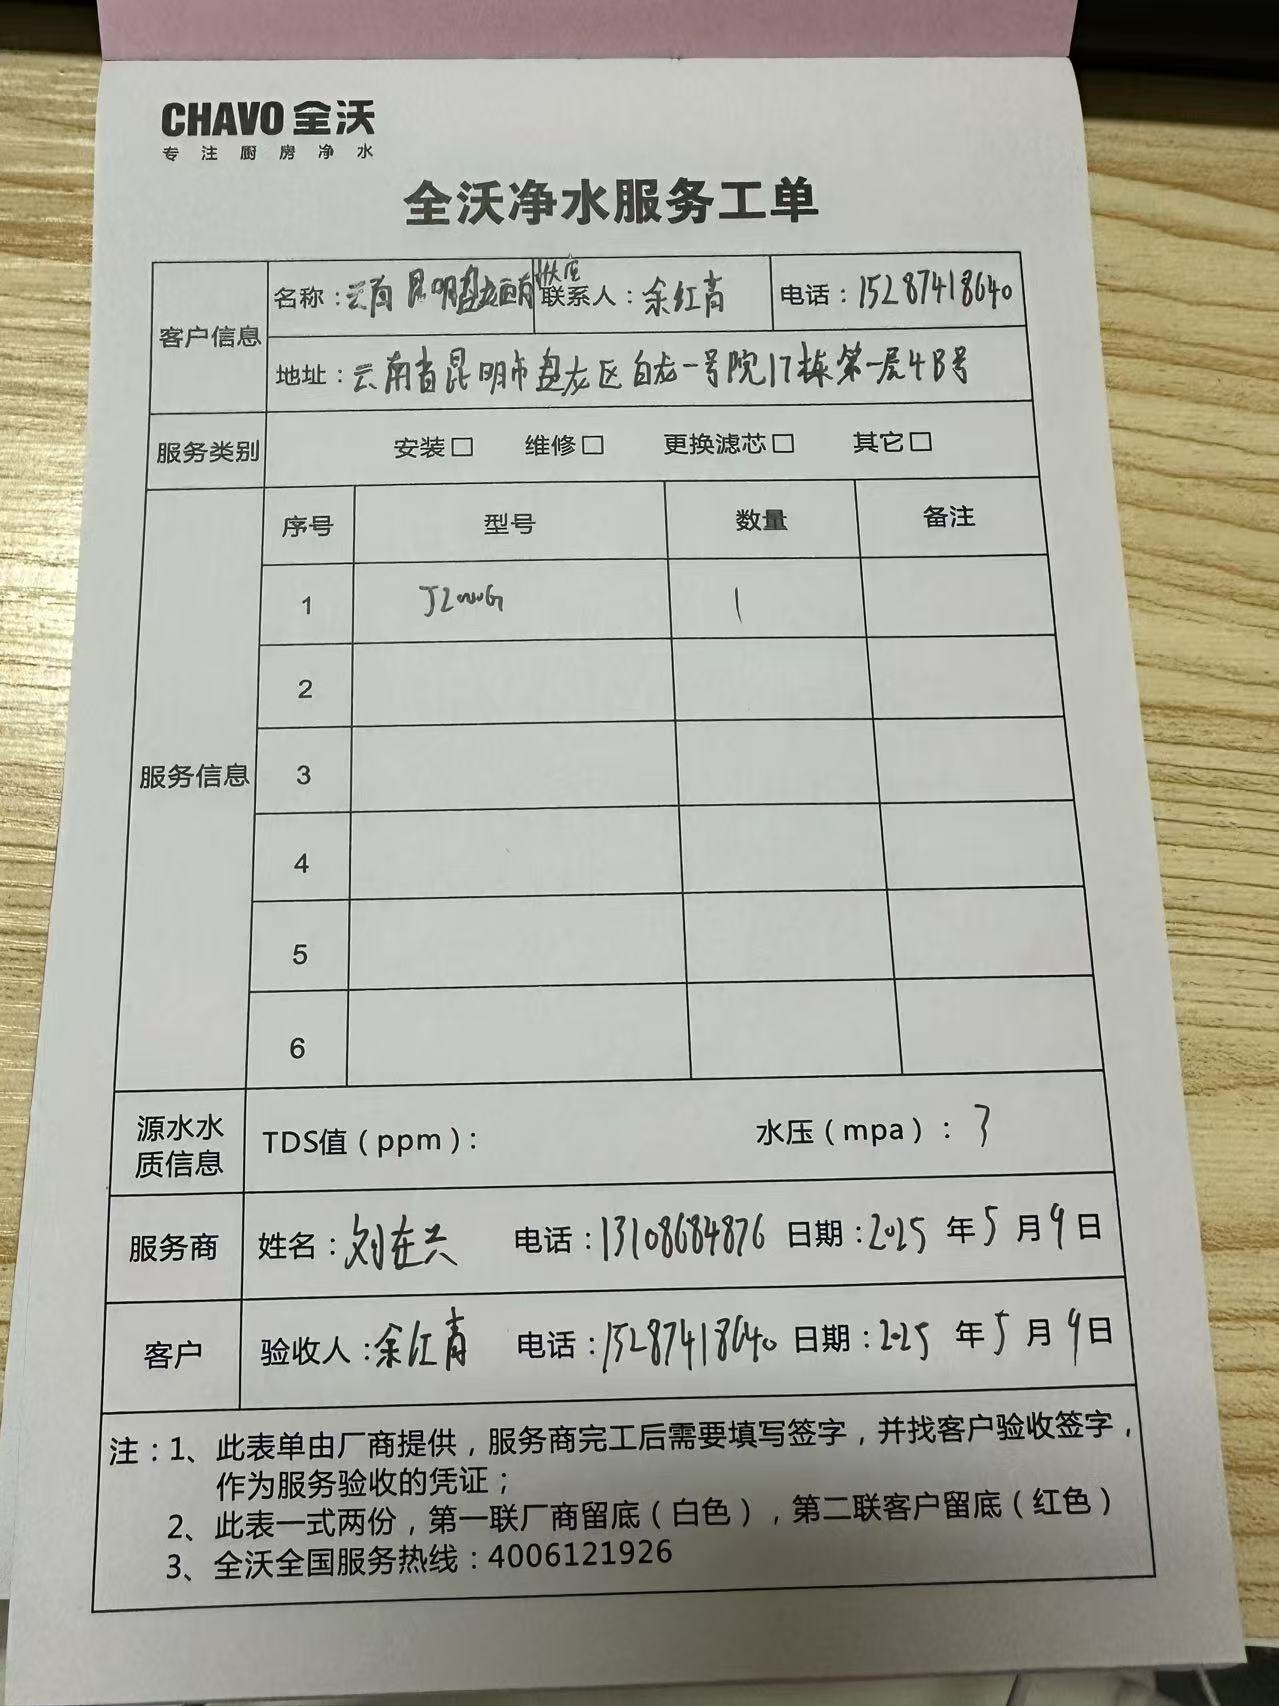 CHAVO 全沃
专注厨房净水
全沃净水服务工单
客户信息
名称：云南昆明盘龙 店 联系人：余红青 电话：15287418640
地址：云南省昆明市盘龙区白龙一号院17栋第一层4B号
服务类别 安装□ 维修□ 更换滤芯□ 其它□
服务信息
序号 型号 数量 备注
1 J2000G 1
2
3
4
5
6
源水水质信息 TDS值（ppm）： 水压（mpa）：3
服务商 姓名：刘在兴 电话：13108684876 日期：2025 年 5 月 9 日
客户 验收人：余红青 电话：15287418640 日期：2025 年 5 月 9 日
注：1、此表单由厂商提供，服务商完工后需要填写签字，并找客户验收签字，
作为服务验收的凭证；
2、此表一式两份，第一联厂商留底（白色），第二联客户留底（红色）
3、全沃全国服务热线：4006121926